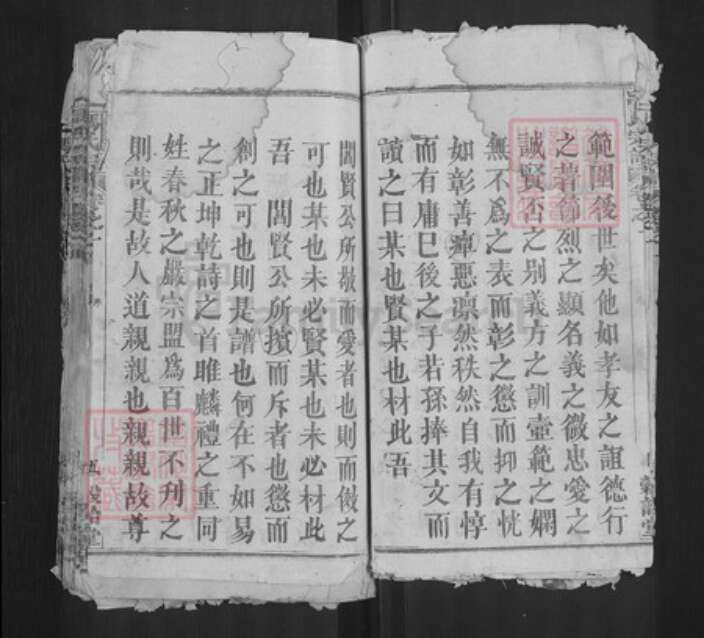 範圍後世矣他如孝友之誼德行
之著節烈之顯名義之微忠愛之
誠賢否之别義方之訓壼範之嫻
無不爲之表而彰之懲而抑之恍
如彰善癉惡凛然秩然自我有惇
而有庸巳後之子若孫捧其文而
讀之曰某也賢某也材此吾
閭賢公所敬而愛者也則而傚之
可也某也未必賢某也未必材此
吾 閭賢公所擯而斥者也懲而
創之可也則是譜也何在不如易
之正坤乾詩之首雎麟禮之重同
姓春秋之嚴宗盟爲百世不刋之
則哉是故人道親親也親親故尊